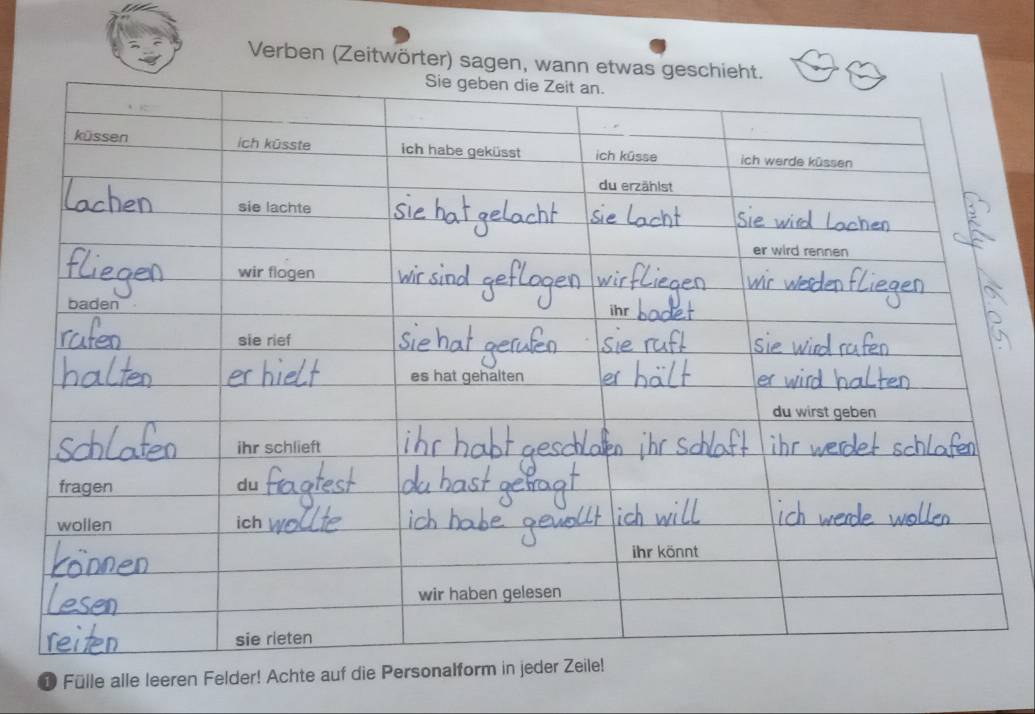 Verben (Zeitwörter) sagen, wann etwas geschieht.
Sie geben die Zeit an.
küssen ich küsste ich habe geküsst ich küsse ich werde küssen
du erzählst
lachen sie lachte sie hat gelacht sie lacht sie wird lachen
er wird rennen
fliegen wir flogen wir sind geflogen wir fliegen wir werden fliegen
baden ihr badet
rufen sie rief sie hat gerufen sie ruft sie wird rufen
halten er hielt es hat gehalten er hält er wird halten
du wirst geben
schlafen ihr schlieft ihr habt geschlafen ihr schlaft ihr werdet schlafen
fragen du fragtest du hast gefragt
wollen ich wollte ich habe gewollt ich will ich werde wollen
können ihr könnt
lesen wir haben gelesen
reiten sie rieten
1 Fülle alle leeren Felder! Achte auf die Personalform in jeder Zeile!
Emily 16.05.